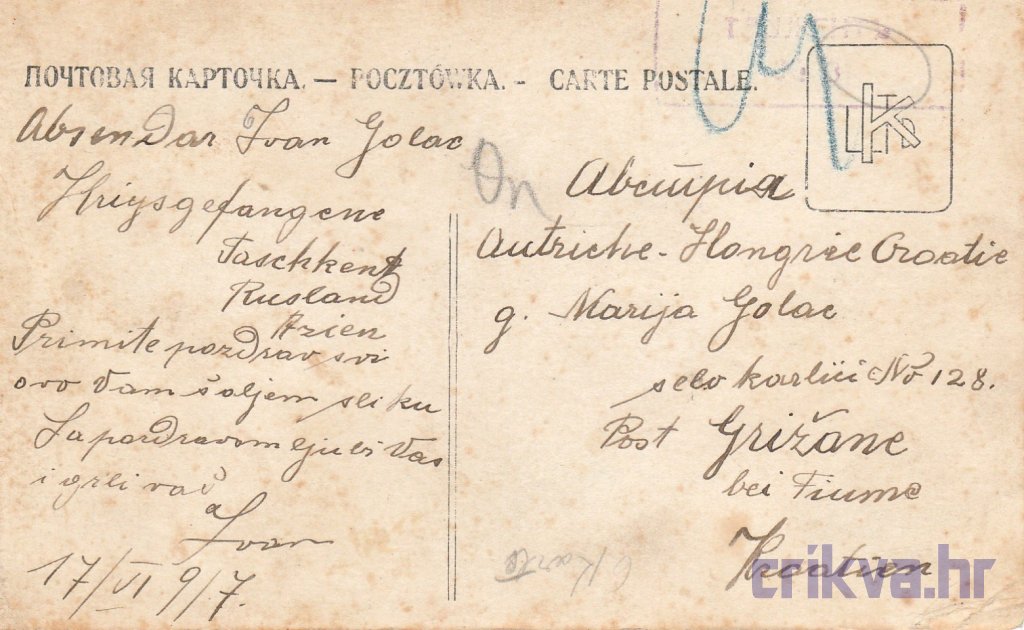 ПОЧТОВАЯ КАРТОЧКА. — POCZTÓWKA. - CARTE POSTALE.
Absendar Ivan Golac
Kriysgefangene
Taschkent
Rusland
Azien
Primite pozdrav svi
ovo Vam šaljem sliku
Sa pozdravom ljubi Vas
i grli vaš
Ivan
17/VI 9/7.
Австрия
Autriche-Hongrie Croatie
g. Marija Golac
selo karlići No 128.
Post Grižane
bei Fiume
Kroatien
crikva.hr